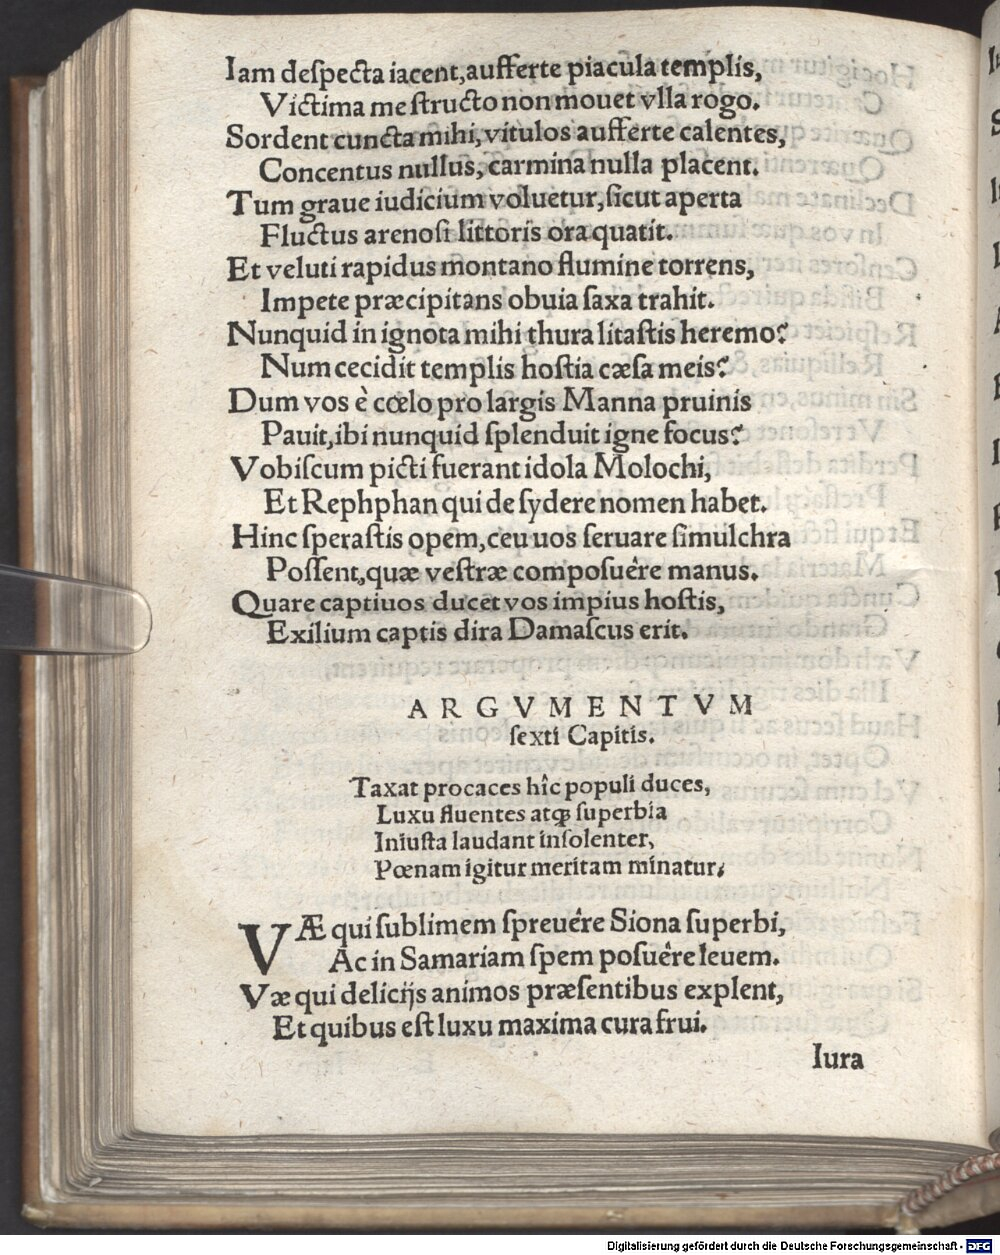 Iam deſpecta iacent,aufferte piacula templis,
Victima me ſtructo non mouet vlla rogo.
Sordent cuncta mihi, vitulos aufferte calentes,
Concentus nullus, carmina nulla placent.
Tum graue iudicium voluetur, ſicut aperta
Fluctus arenoſi littoris ora quatit.
Et veluti rapidus montano flumine torrens,
Impete præcipitans obuia ſaxa trahit.
Nunquid in ignota mihi thura litaſtis heremo?
Num cecidit templis hoſtia cæſa meis?
Dum vos è cœlo pro largis Manna pruinis
Pauit, ibi nunquid ſplenduit igne focus?
Vobiſcum picti fuerant idola Molochi,
Et Rephphan qui de ſydere nomen habet.
Hinc ſperaſtis opem, ceu uos ſeruare ſimulchra
Poſſent, quæ veſtræ compoſuêre manus.
Quare captiuos ducet vos impius hoſtis,
Exilium captis dira Damaſcus erit.
ARGVMENTVM
ſexti Capitis.
Taxat procaces hîc populi duces,
Luxu fluentes atqꝫ ſuperbia
Iniuſta laudant inſolenter,
Pœnam igitur meritam minatur;
VÆ qui ſublimem ſpreuêre Siona ſuperbi,
Ac in Samariam ſpem poſuêre leuem.
Væ qui delicijs animos præſentibus explent,
Et quibus eſt luxu maxima cura frui.
Iura
Digitalisierung gefördert durch die Deutsche Forschungsgemeinschaft - DFG